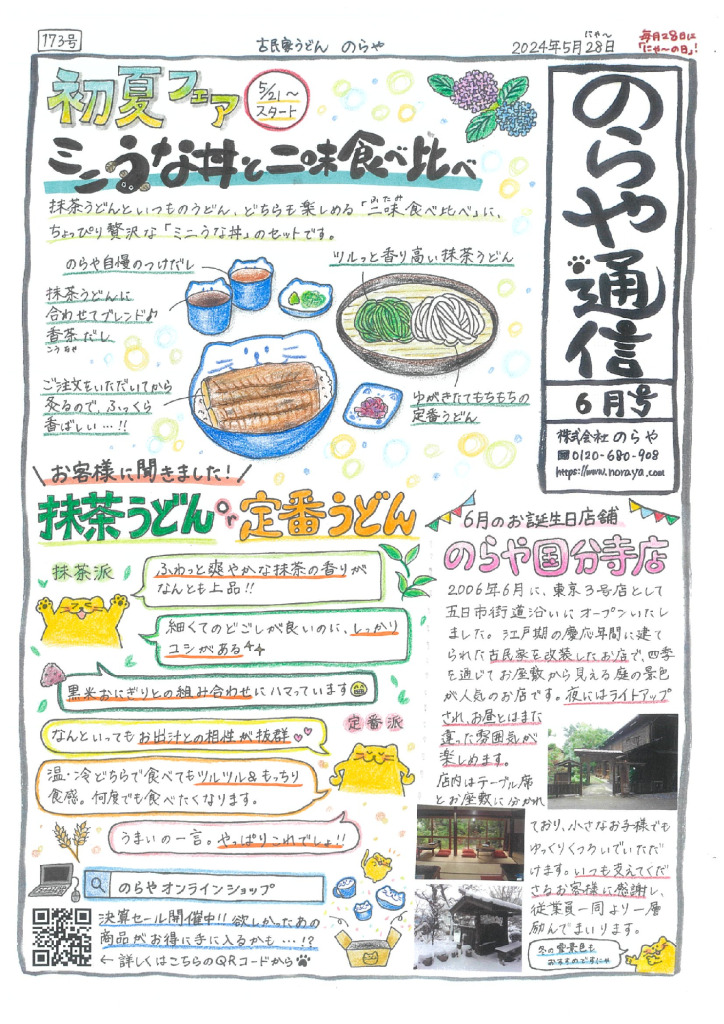 173号
古民家うどん のらや
にゃ〜
2024年5月28日
毎月28日に
「にゃ〜の日」!
のらや通信
6月号
株式会社 のらや
0120-680-908
https://www.noraya.com
初夏フェア
5/21〜
スタート
ミニうな丼と二味食べ比べ
抹茶うどんといつものうどん、どちらも楽しめる「二味・食べ比べ」に、
ふたみ
ちょっぴり贅沢な「ミニうな丼」のセットです。
のらや自慢のつけだし
ツルっと香り高い抹茶うどん
抹茶うどんに
合わせてブレンド♪
香茶だし
こうちゃ
ご注文をいただいてから
炙るので、ふっくら
香ばしい…!!
ゆがきたてもちもちの
定番うどん
\お客様に聞きました!/
抹茶うどんor定番うどん
抹茶派
ふわっと爽やかな抹茶の香りが
なんとも上品!!
細くてのどごしが良いのに、しっかり
コシがある
黒米おにぎりとの組み合わせにハマっています😁
定番派
なんといってもお出汁との相性が抜群♡♡
温・冷どちらで食べてもツルツル&もっちり
食感。何度でも食べたくなります。
うまいの一言。やっぱりこれでしょ!!
のらやオンラインショップ
決算セール開催中!!欲しかったあの
商品がお得に手に入るかも…!?
←詳しくはこちらのQRコードから
6月のお誕生日店舗
のらや国分寺店
2006年6月に、東京3号店として
五日市街道沿いにオープンいたし
ました。江戸期の慶応年間に建て
られた古民家を改装したお店で、四季
を通じてお座敷から見える庭の景色
が人気のお店です。夜にはライトアップ
され、お昼とはまた
違った雰囲気が
楽しめます。
店内はテーブル席
とお座敷に分かれ
ており、小さなお子様でも
ゆっくりくつろいでいただ
けます。いつも支えてくだ
さるお客様に感謝し、
従業員一同より一層
励んでまいります。
冬の雪景色も
おすすめですにゃ